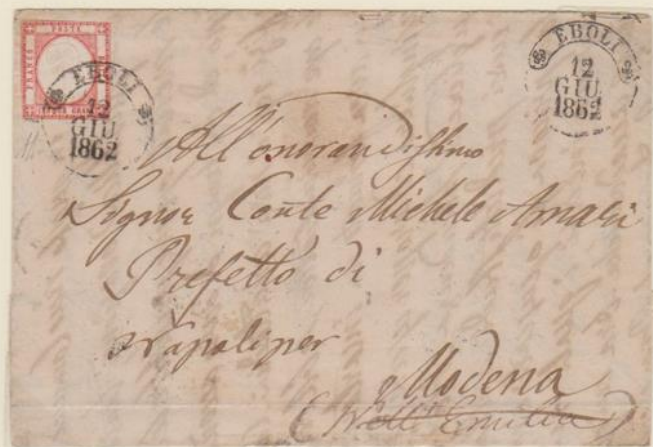 FRANCO
POSTA
BOLLO
EBOLI
12
GIU
1862
EBOLI
12
GIU
1862
All'onorandissimo
Signor Conte Michele Amari
Prefetto di
Napoli per
Modena
(Nell' Emilia)